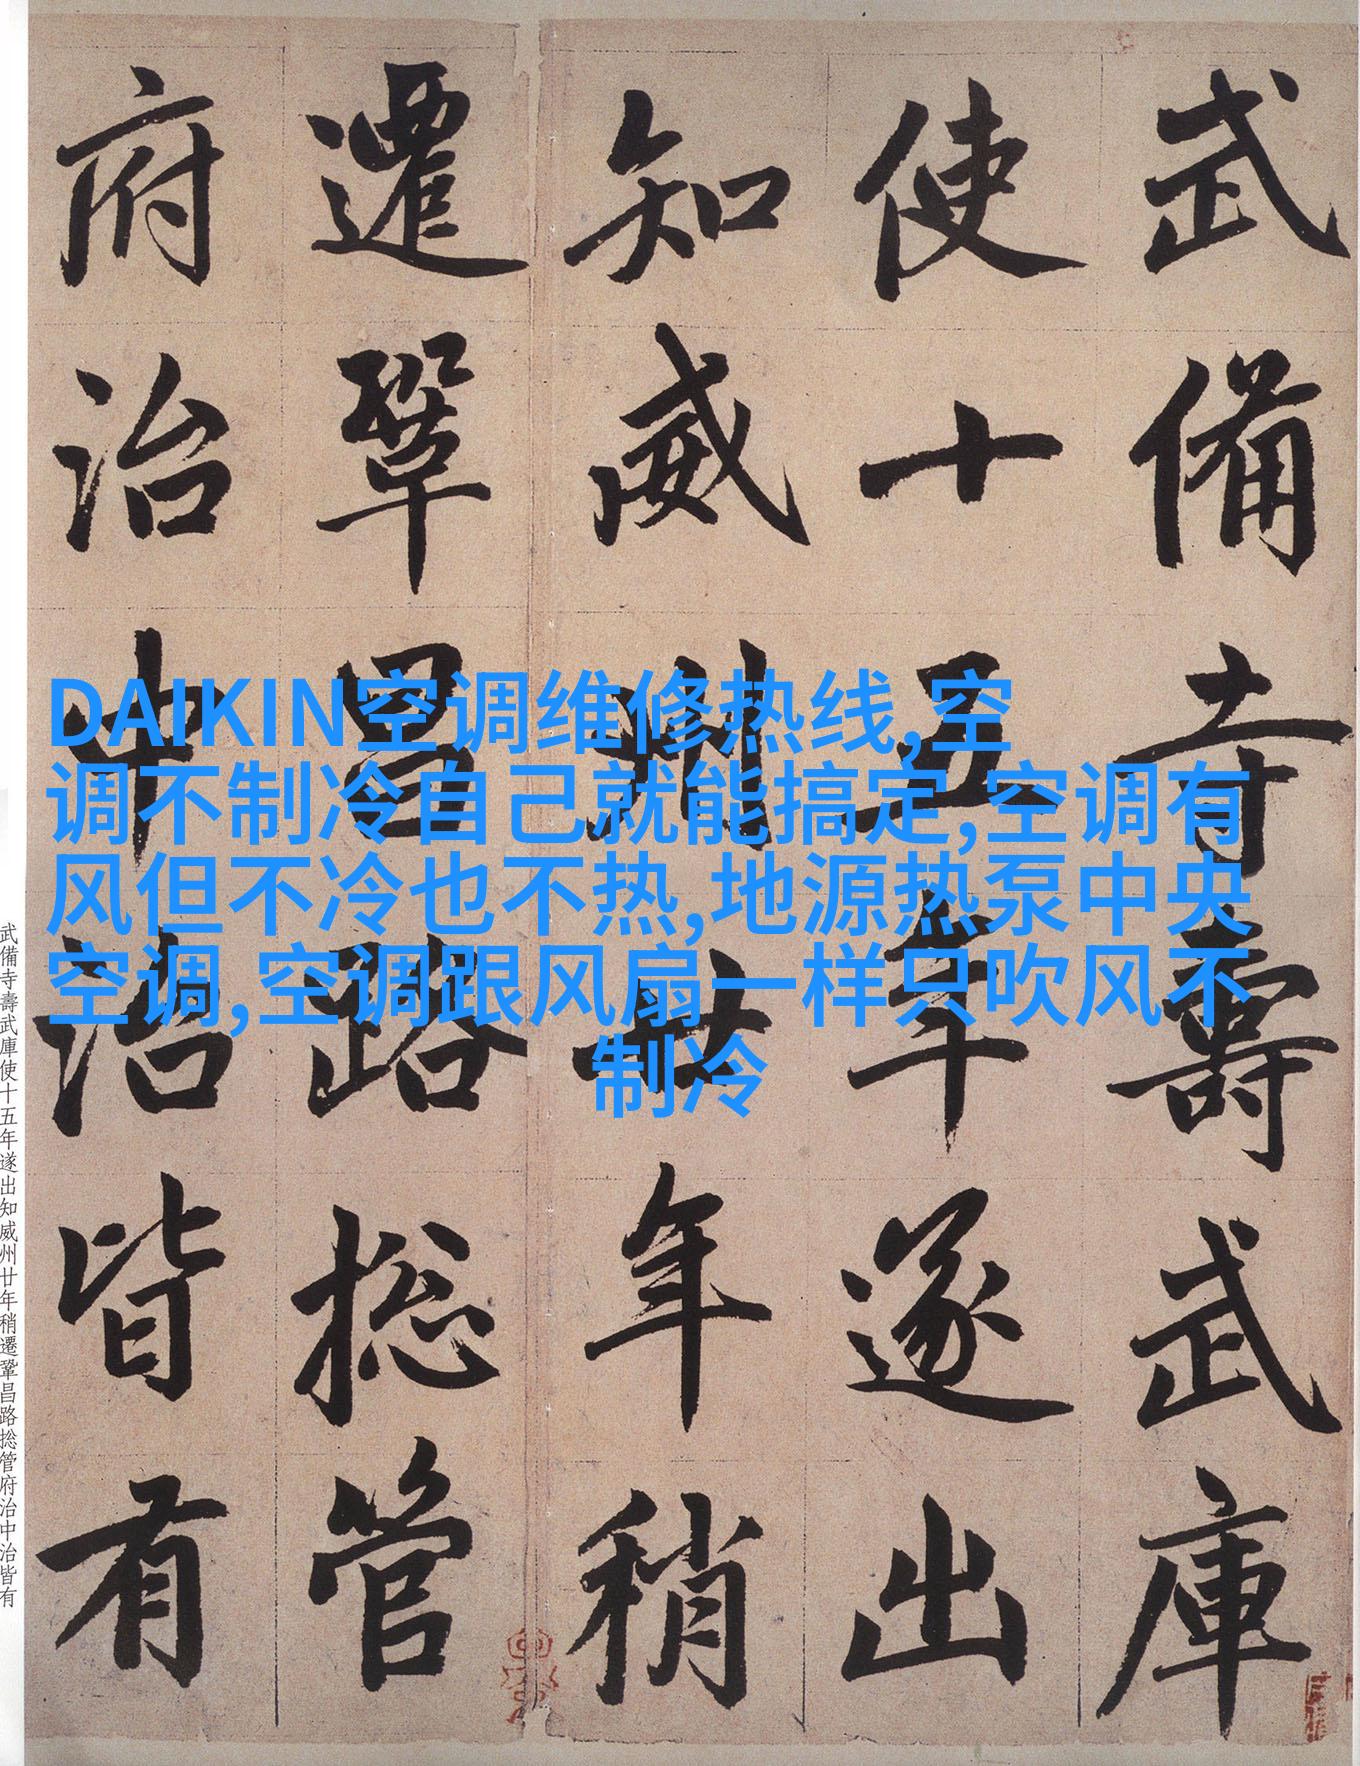 武備寺壽武庫
使十五年遂出
知威州廿年稍
遷鞏昌路捴管
府治中治皆有
DAIKIN空调维修热线,空
调不制冷自己就能搞定,空调有
风但不冷也不热,地源热泵中央
空调,空调跟风扇一样只吹风不
制冷
武備寺壽武庫使十五年遂出知威州廿年稍遷鞏昌路捴管府治中治皆有